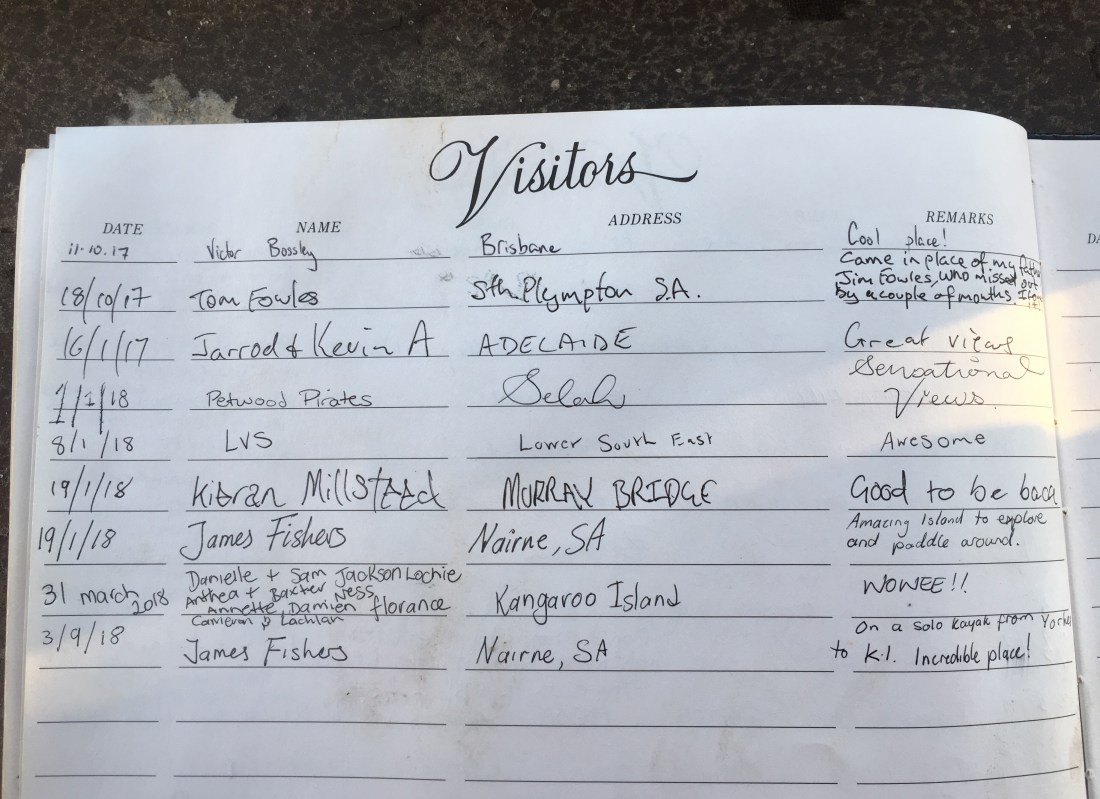 Visitors
DATE NAME ADDRESS REMARKS
11.10.17 Victor Bossley Brisbane Cool place!
18/10/17 Tom Fowles Sth Plympton S.A. Came in place of my father
Jim Fowles, who missed out
by a couple of months.
16/1/17 Jarrod & Kevin A ADELAIDE Great views
1/1/18 Petwood Pirates Selah Sensational
Views.
8/1/18 LVS Lower South East Awesome
19/1/18 Kieran Millsteed MURRAY BRIDGE Good to be back
19/1/18 James Fishers Nairne, SA Amazing Island to explore
and paddle around.
31 march 2018 Danielle + Sam Jackson Lochie
Anthea + Baxter Ness
Annette, Damien florance
Cameron & Lachlan
Kangaroo Island WOWEE!!
3/9/18 James Fishers Nairne, SA On a solo kayak from Yorke
to K.I. Incredible place!
DA